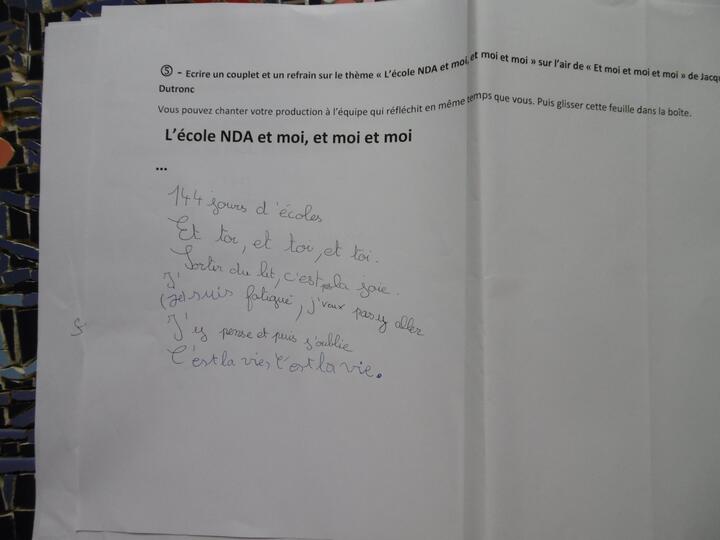 ⑤ - Ecrire un couplet et un refrain sur le thème « L'école NDA et moi, et moi et moi » sur l'air de « Et moi et moi et moi » de Jacqu
Dutronc
Vous pouvez chanter votre production à l'équipe qui réfléchit en même temps que vous. Puis glisser cette feuille dans la boîte.
L'école NDA et moi, et moi et moi
...
144 jours d'écoles
Et toi, et toi, et toi.
Sortir du lit, c'est pas la joie.
J'
(Je) suis fatigué, j'veux pas y aller
J'y pense et puis j'oublie
C'est la vie, c'est la vie.